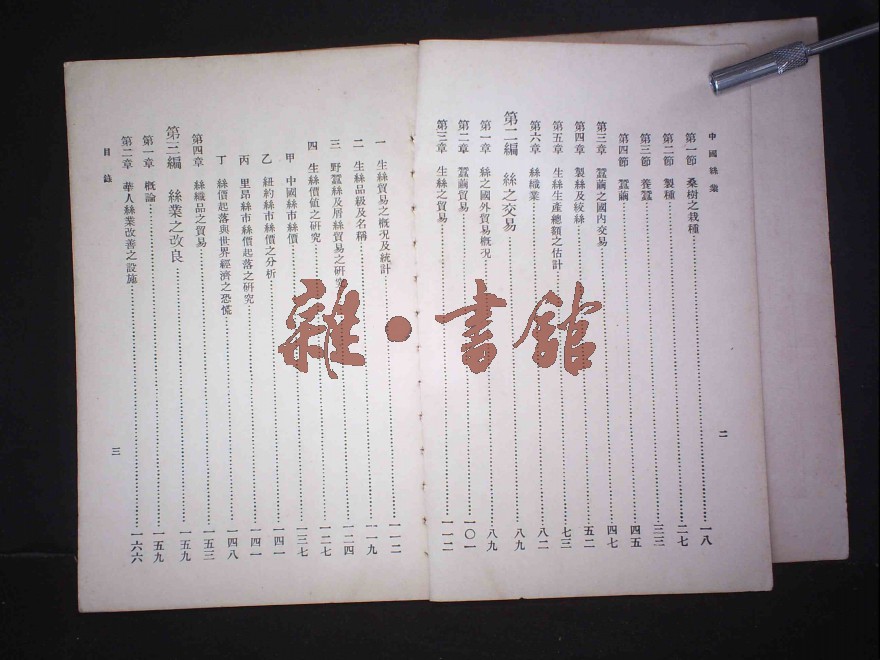 中國絲業
第一節 桑樹之栽種 一八
第二節 製種 二七
第三節 養蠶 三三
第四節 蠶繭 四五
第三章 蠶繭之國內交易 四七
第四章 製絲及絞絲 五二
第五章 生絲生產總額之估計 七三
第六章 絲織業 八二
第二編 絲之交易 八九
第一章 絲之國外貿易概況 八九
第二章 蠶繭貿易 一〇一
第三章 生絲之貿易 一一二
二
一 生絲貿易之概況及統計 一一二
二 生絲品級及名稱 一一九
三 野蠶絲及屑絲貿易之研究 一二四
四 生絲價値之研究 一二七
甲 中國絲市絲價 一三七
乙 紐約絲市絲價之分析 一四一
丙 里昂絲市絲價起落之研究 一四一
丁 絲價起落與世界經濟之恐慌 一四八
第四章 絲織品之貿易 一五三
第三編 絲業之改良 一五九
第一章 概論 一五九
第二章 華人絲業改善之設施 一六六
目錄
三
雜·書館